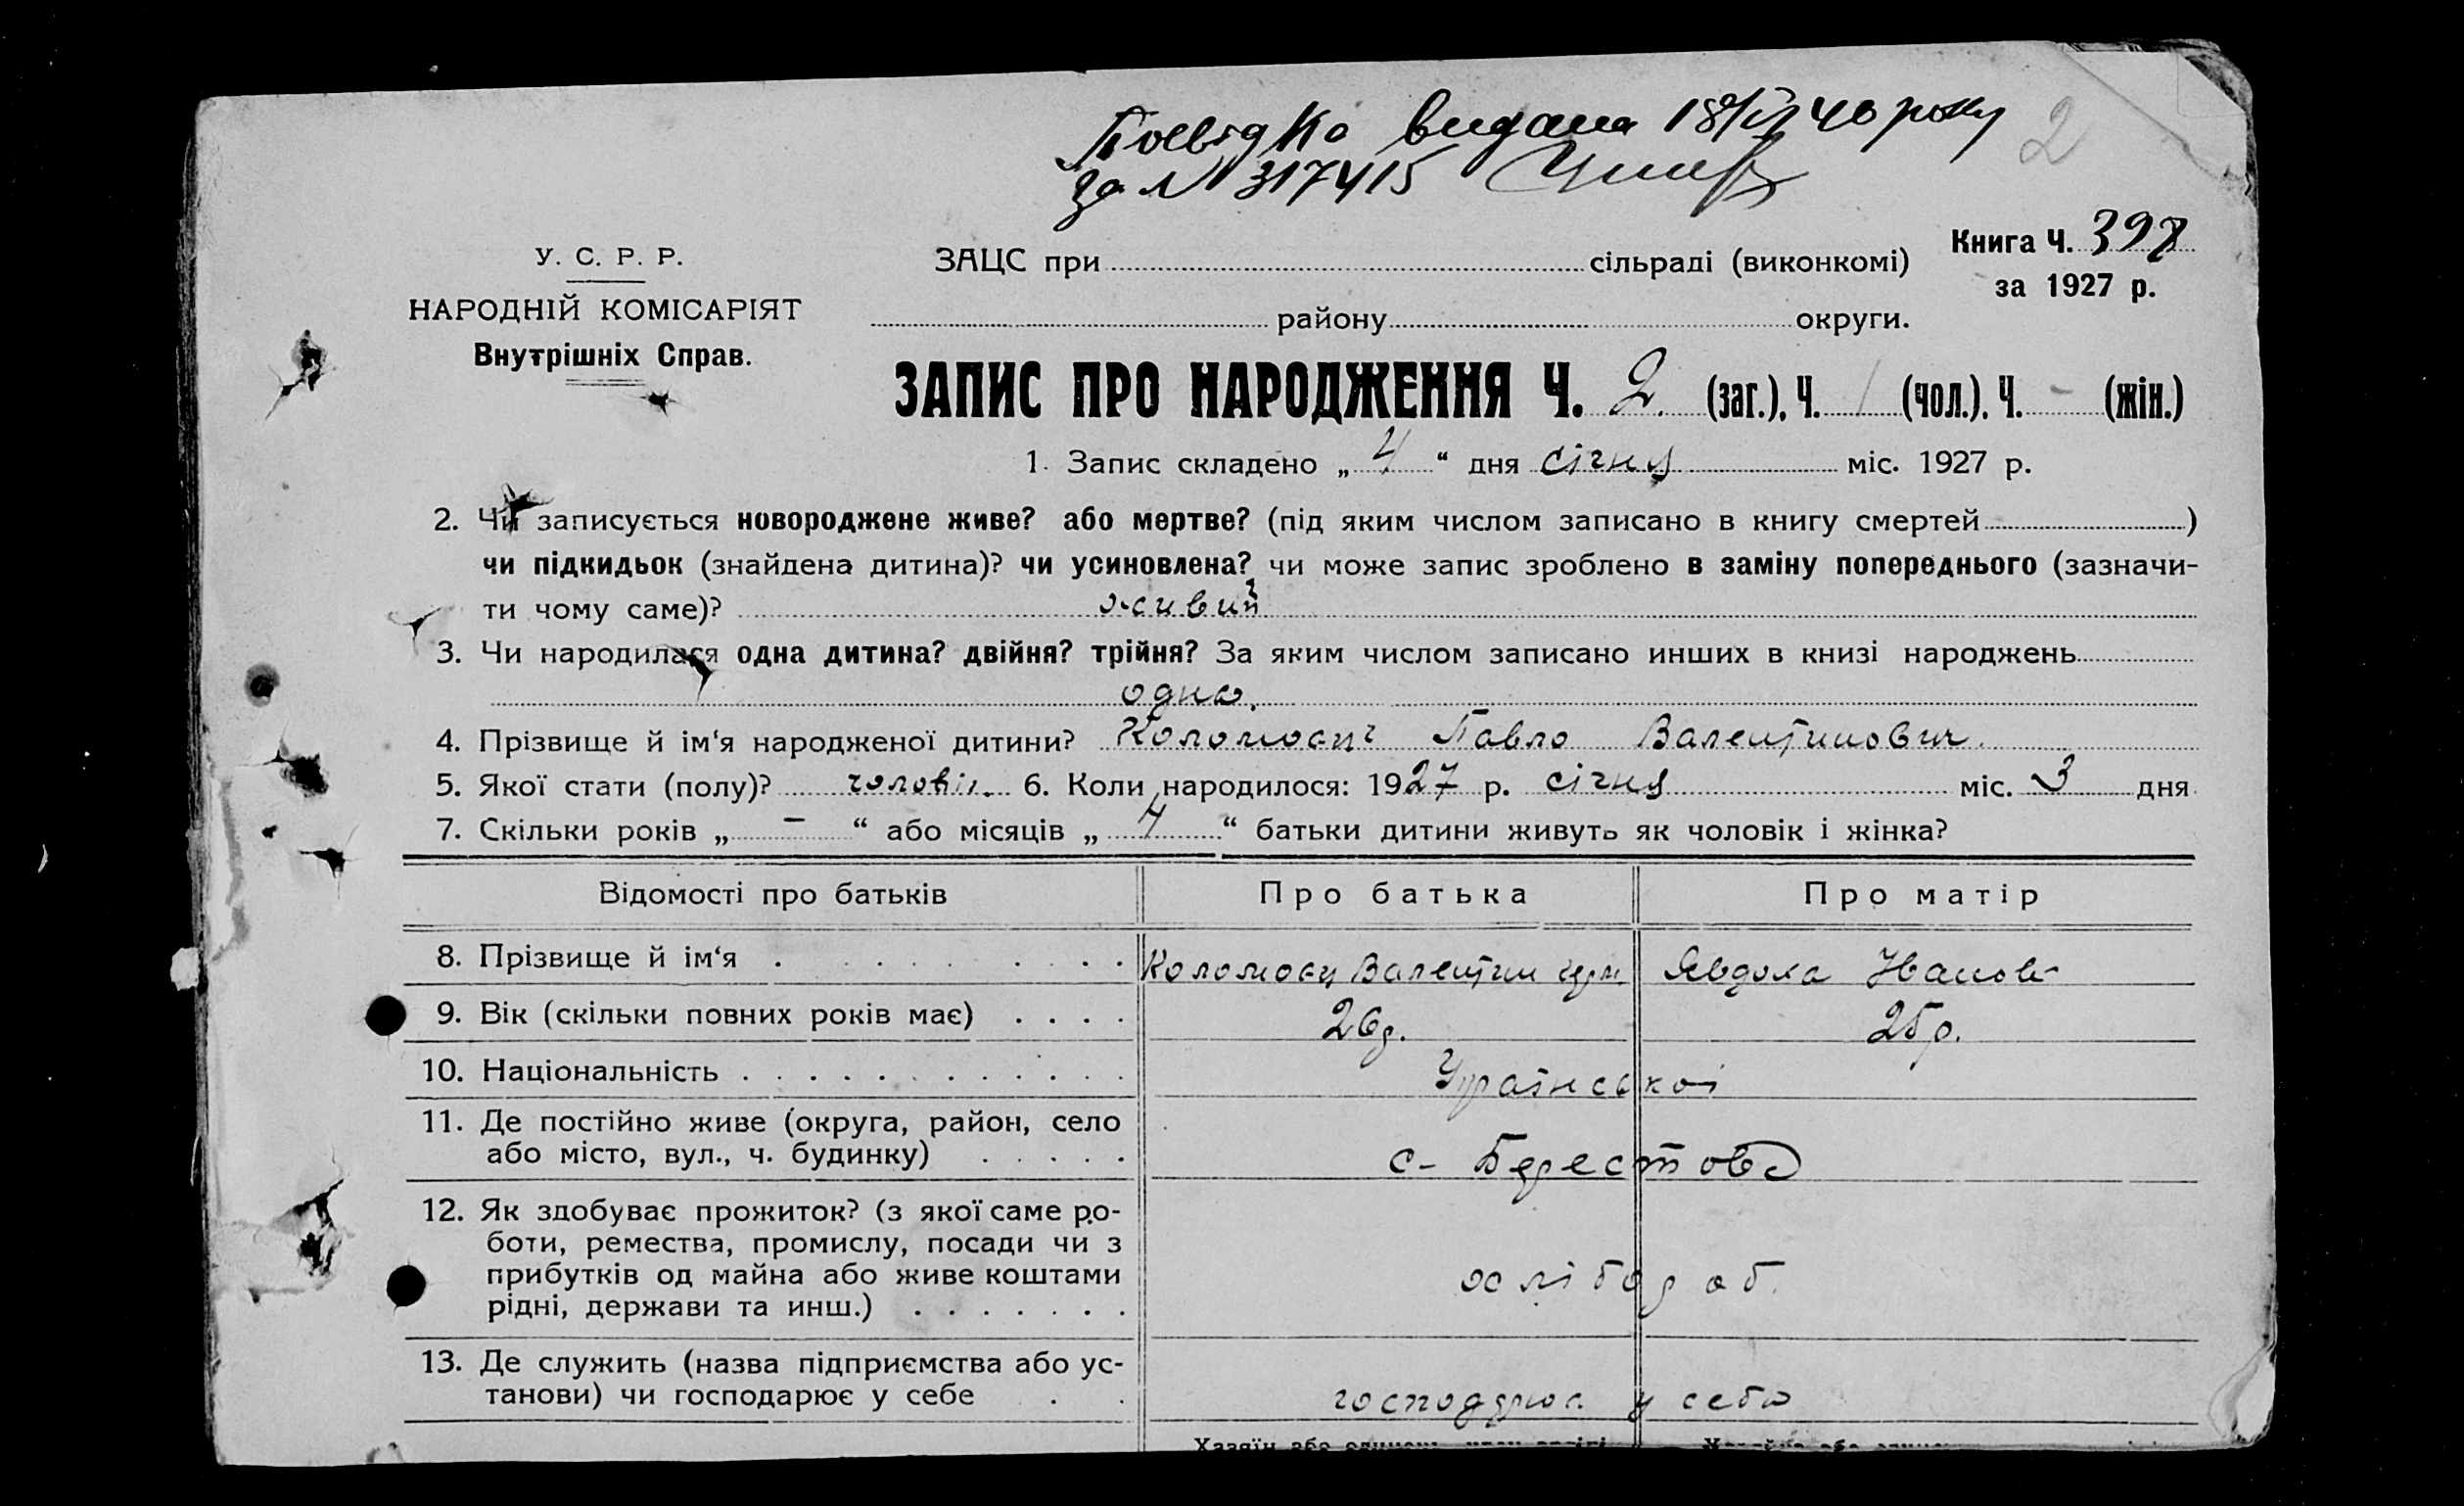 Посвідка видана 18/VI 40 року
за № 317415
2
У. С. Р. Р.
НАРОДНІЙ КОМІСАРІЯТ
Внутрішніх Справ.
ЗАЦС при сільраді (виконкомі)
району округи.
Книга Ч. 398
за 1927 р.
ЗАПИС ПРО НАРОДЖЕННЯ Ч. 2. (заг.), Ч. 1 (чол.), Ч. - (жін.)
1. Запис складено „ 4 “ дня січня міс. 1927 р.
2. Чи записується новороджене живе? або мертве? (під яким числом записано в книгу смертей )
чи підкидьок (знайдена дитина)? чи усиновлена? чи може запис зроблено в заміну попереднього (зазначи-
ти чому саме)? живий
3. Чи народилася одна дитина? двійня? трійня? За яким числом записано инших в книзі народжень
одна.
4. Прізвище й ім‘я народженої дитини? Коломоєць Павло Валентинович.
5. Якої стати (полу)? чоловіч. 6. Коли народилося: 1927 р. січня міс. 3 дня
7. Скільки років „ – “ або місяців „ 4 “ батьки дитини живуть як чоловік і жінка?
Відомості про батьків Про батька Про матір
8. Прізвище й ім‘я Коломоєц Валентин Явдоха Іванов-
9. Вік (скільки повних років має) 26р. 25р.
10. Національність Української
11. Де постійно живе (округа, район, село
або місто, вул., ч. будинку) с- Берестове
12. Як здобуває прожиток? (з якої саме ро-
боти, ремества, промислу, посади чи з
прибутків од майна або живе коштами
рідні, держави та инш.) хлібороб.
13. Де служить (назва підприємства або ус-
танови) чи господарює у себе господарює у себе